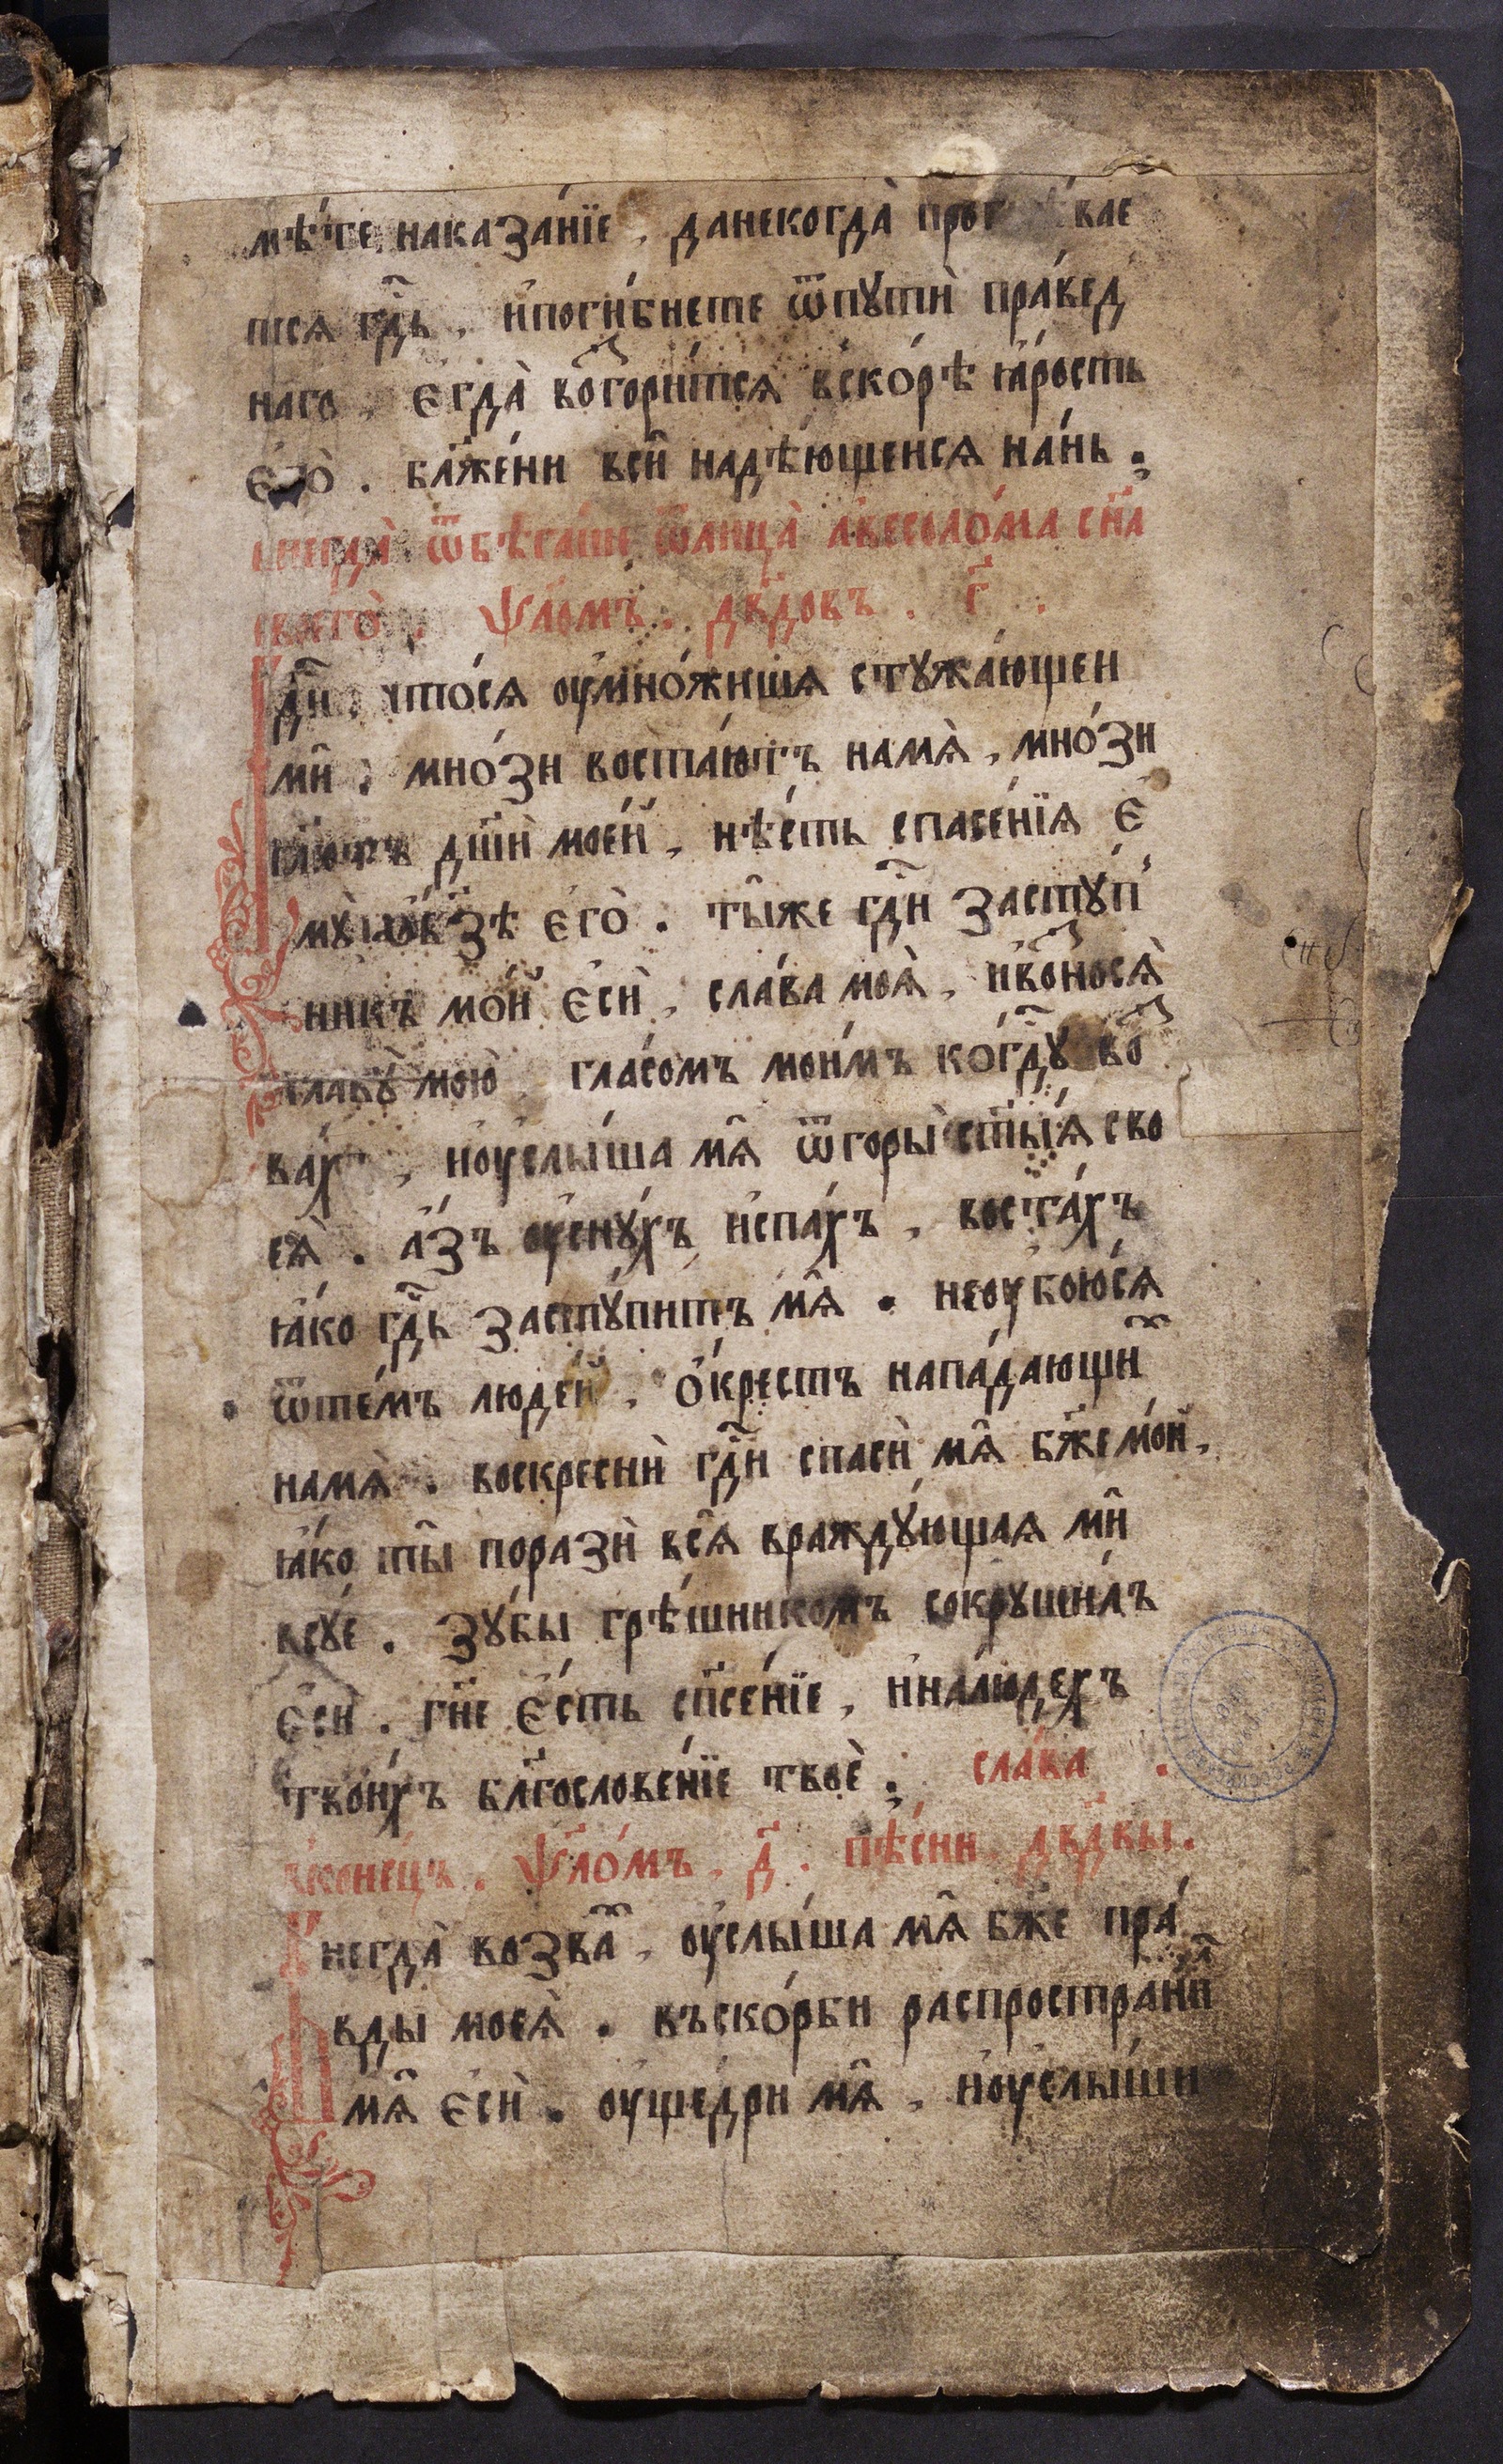 мѣ́те наказа́нїе, данекогда̀ прог вае
тся гд҇ь, и҆поги́бнете ѿпутѝ пра́вед
наго, є҆гда̀ вогори́тся вско́рѣ ꙗ҆́рость
є҆го̀. бл҃же́ни вси̑ надѣ́ющеися на́нь.
внегда̀ ѿбѣга́ше ѿлица̀ а҆весоло́ма сн҃а
своего̀. ѱло́мъ. дв҃довъ. г҃.
гд҇и, что́ся оу҆мно́жишꙗ стужа́ющеи
ми̑. мно́зи востаю́тъ намѧ̀, мно́зи
гл҃ютъ дш҃и мое́й, нѣ́сть спасе́нїѧ є҆
му̀ ѡ҆бз҃ѣ є҆го̀. ты̑же гд҇и засту́п
никъ мо́й є҆сѝ, сла́ва моѧ̀, и҆вонося̀
главу̀ мою̀, гла́сомъ мои́мъ ког҇ду во
вах, и҆оу҆слы́ша мѧ̑ ѿгоры̀ ст҃ы́ѧ сво
еѧ̀. а҆́зъ оу҆сну́хъ и҆спа́хъ, воста́хъ
ꙗ҆́ко гд҇ь засту́питъ мѧ̑. неоу҆бою́ся
ѿте́мъ люде́й, о҆́крестъ напа́дающи
намѧ̀. воскреснѝ гд҇и спасѝ мѧ̑ бж҃емо́й,
ꙗ҆́ко ты̑ поразѝ всѧ̑ вражду́ющаѧ ми̑
всу́е. зу́бы грѣ́шникомъ сокруши́лъ
є҆сѝ. гн҇е є҆́сть сп҃се́нїе, и҆налю́дехъ
твои́хъ бл҃гослове́нїе твоѐ. сла́ва.
вконе́цъ. ѱло́мъ, д҃. пѣ́сни дв҃двы.
внегда̀ возва̑, оу҆слы́ша мѧ̑ бж҃е пра́
вды моеѧ̀. въско́рби распространи́л
мѧ̑ є҆сѝ. оу҆ще́дри мѧ̑, и҆оу҆слы́ши